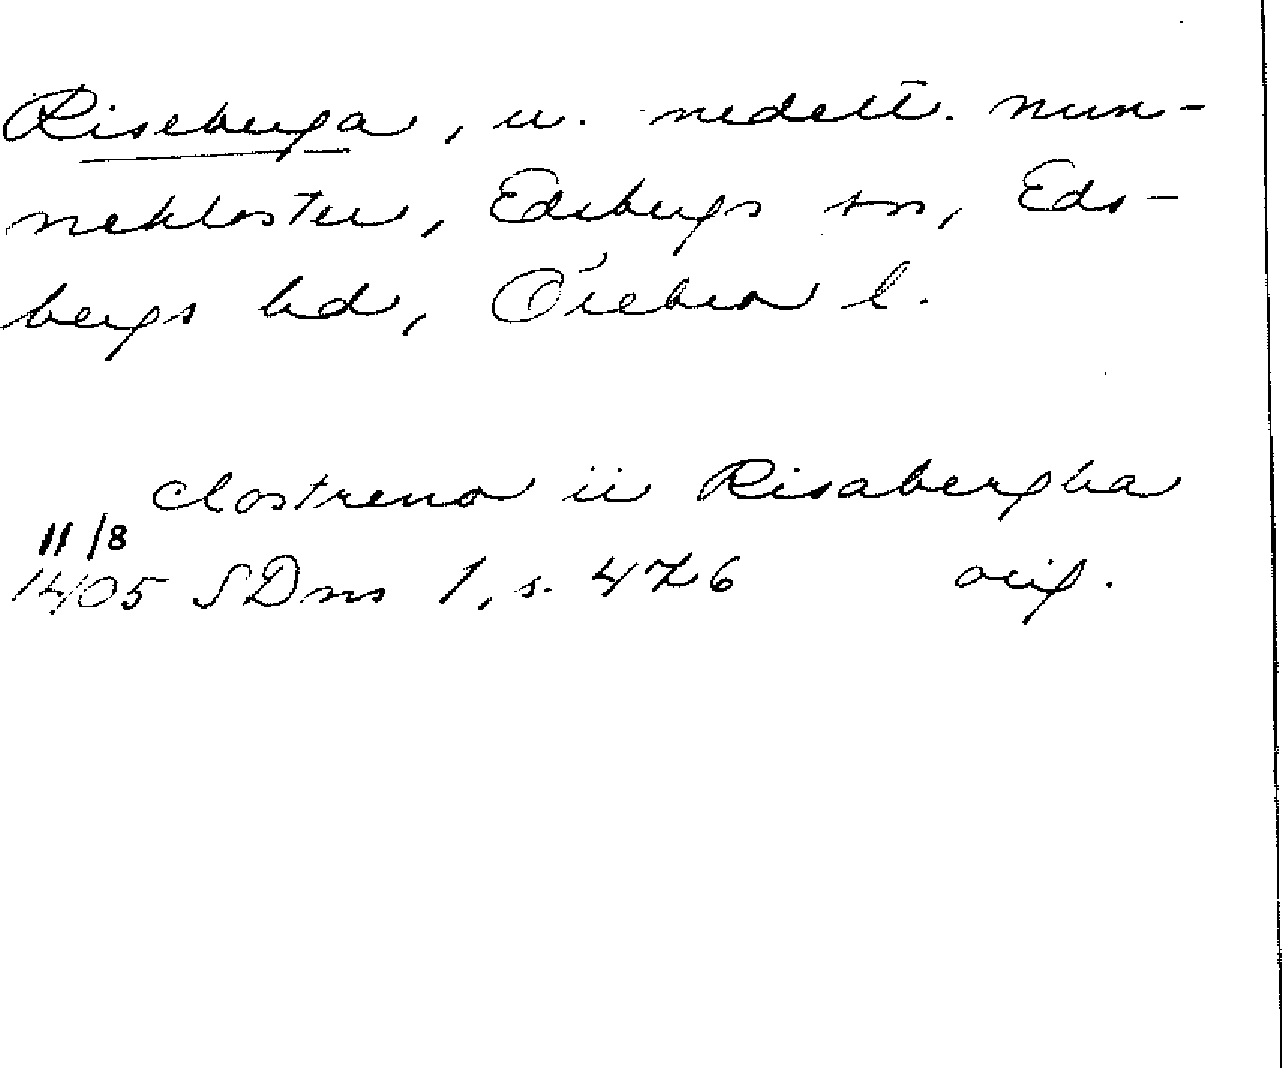 Riseberga, u. nedelt. nun-
nekloster, Edsbergs sn, Eds-
bergs hd, Örebro l.
clostreno ii Risabergha
11/8
1405 SDns 1, s. 476 orig.